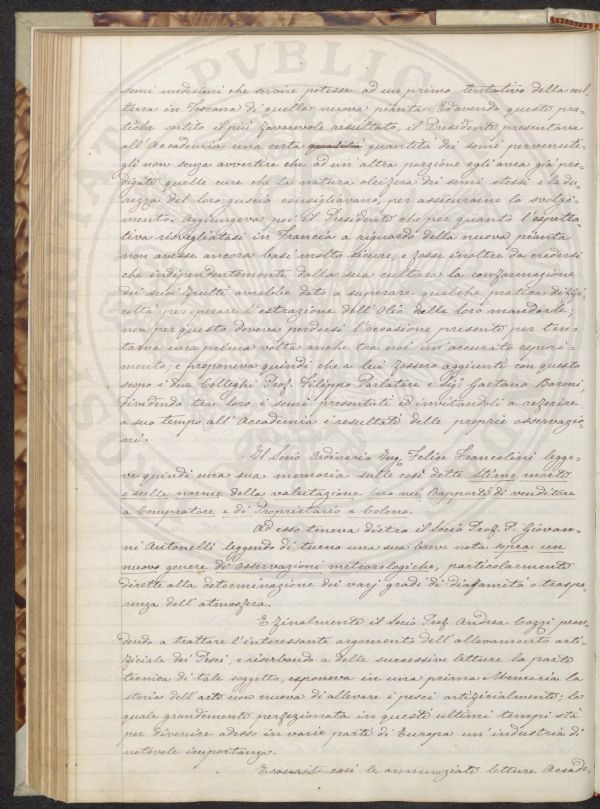 semi medesimi che servire potesse ad un primo tentativo della cul-
tura in Toscana di quella nuova pianta. Ed avendo queste pra-
tiche sortito il più favorevole resultato, il Presidente presentava
all'Accademia una certa quantità dei semi pervenuti-
gli non senza avvertire che ad un'altra porzione egli avea già pro-
digate quelle cure che la natura oleifera dei semi stessi e la du-
rezza del loro guscio consigliavano, per assicurarne lo svolgi-
mento. Aggiungeva poi il Presidente che per quanto l'espetta-
tiva risvegliatasi in Francia a riguardo della nuova pianta
non avesse ancora basi molto sicure, e fosse inoltre da credersi
che indipendentemente dalla sua cultura la conformazione
dei suoi frutti avrebbe dato a superare qualche pratica diffi-
coltà per operare l'estrazione dell'Olio delle loro mandorle;
non per questo doveva perdersi l'occasione presente per ten-
tarne una prima volta anche tra noi un'accurato esperi-
mento; e proponeva quindi che a lui fossero aggiunti con questo
scopo i due Colleghi Prof. Filippo Parlatore e Sig. Gaetano Baroni,
dividendo tra loro i semi presentati ed invitandoli a referire
a suo tempo all'Accademia i resultati delle proprie osservazio-
ni.
Il Socio Ordinario Ing. Felice Francolini legge-
va quindi una sua memoria sulle così dette Stime morte
e sulle norme della valutazione loro nei Rapporti di venditore
a Compratore e di Proprietario a Colono.
Ad esso teneva dietro il Socio Prof. P. Giovan-
ni Antonelli leggendo di turno una sua breve nota sopra un
nuovo genere di osservazioni meteorologiche, particolarmente
dirette alla determinazione dei varj gradi di diafanità o traspa-
renza dell'atmosfera.
E finalmente il Socio Prof. Andrea Cozzi pren-
dendo a trattare l'interessante argomento dell'allevamento arti-
ficiale dei Pesci, e riserbando a delle successive letture la parte
tecnica di tale soggetto, esponeva in una prima Memoria la
storia dell'arte non nuova di allevare i pesci artificialmente; la
quale grandemente perfezionata in questi ultimi tempi stà
per divenire adesso in varie parti di Europa un'industria di
notevole importanza.
Esaurite così le annunziate letture Accade-